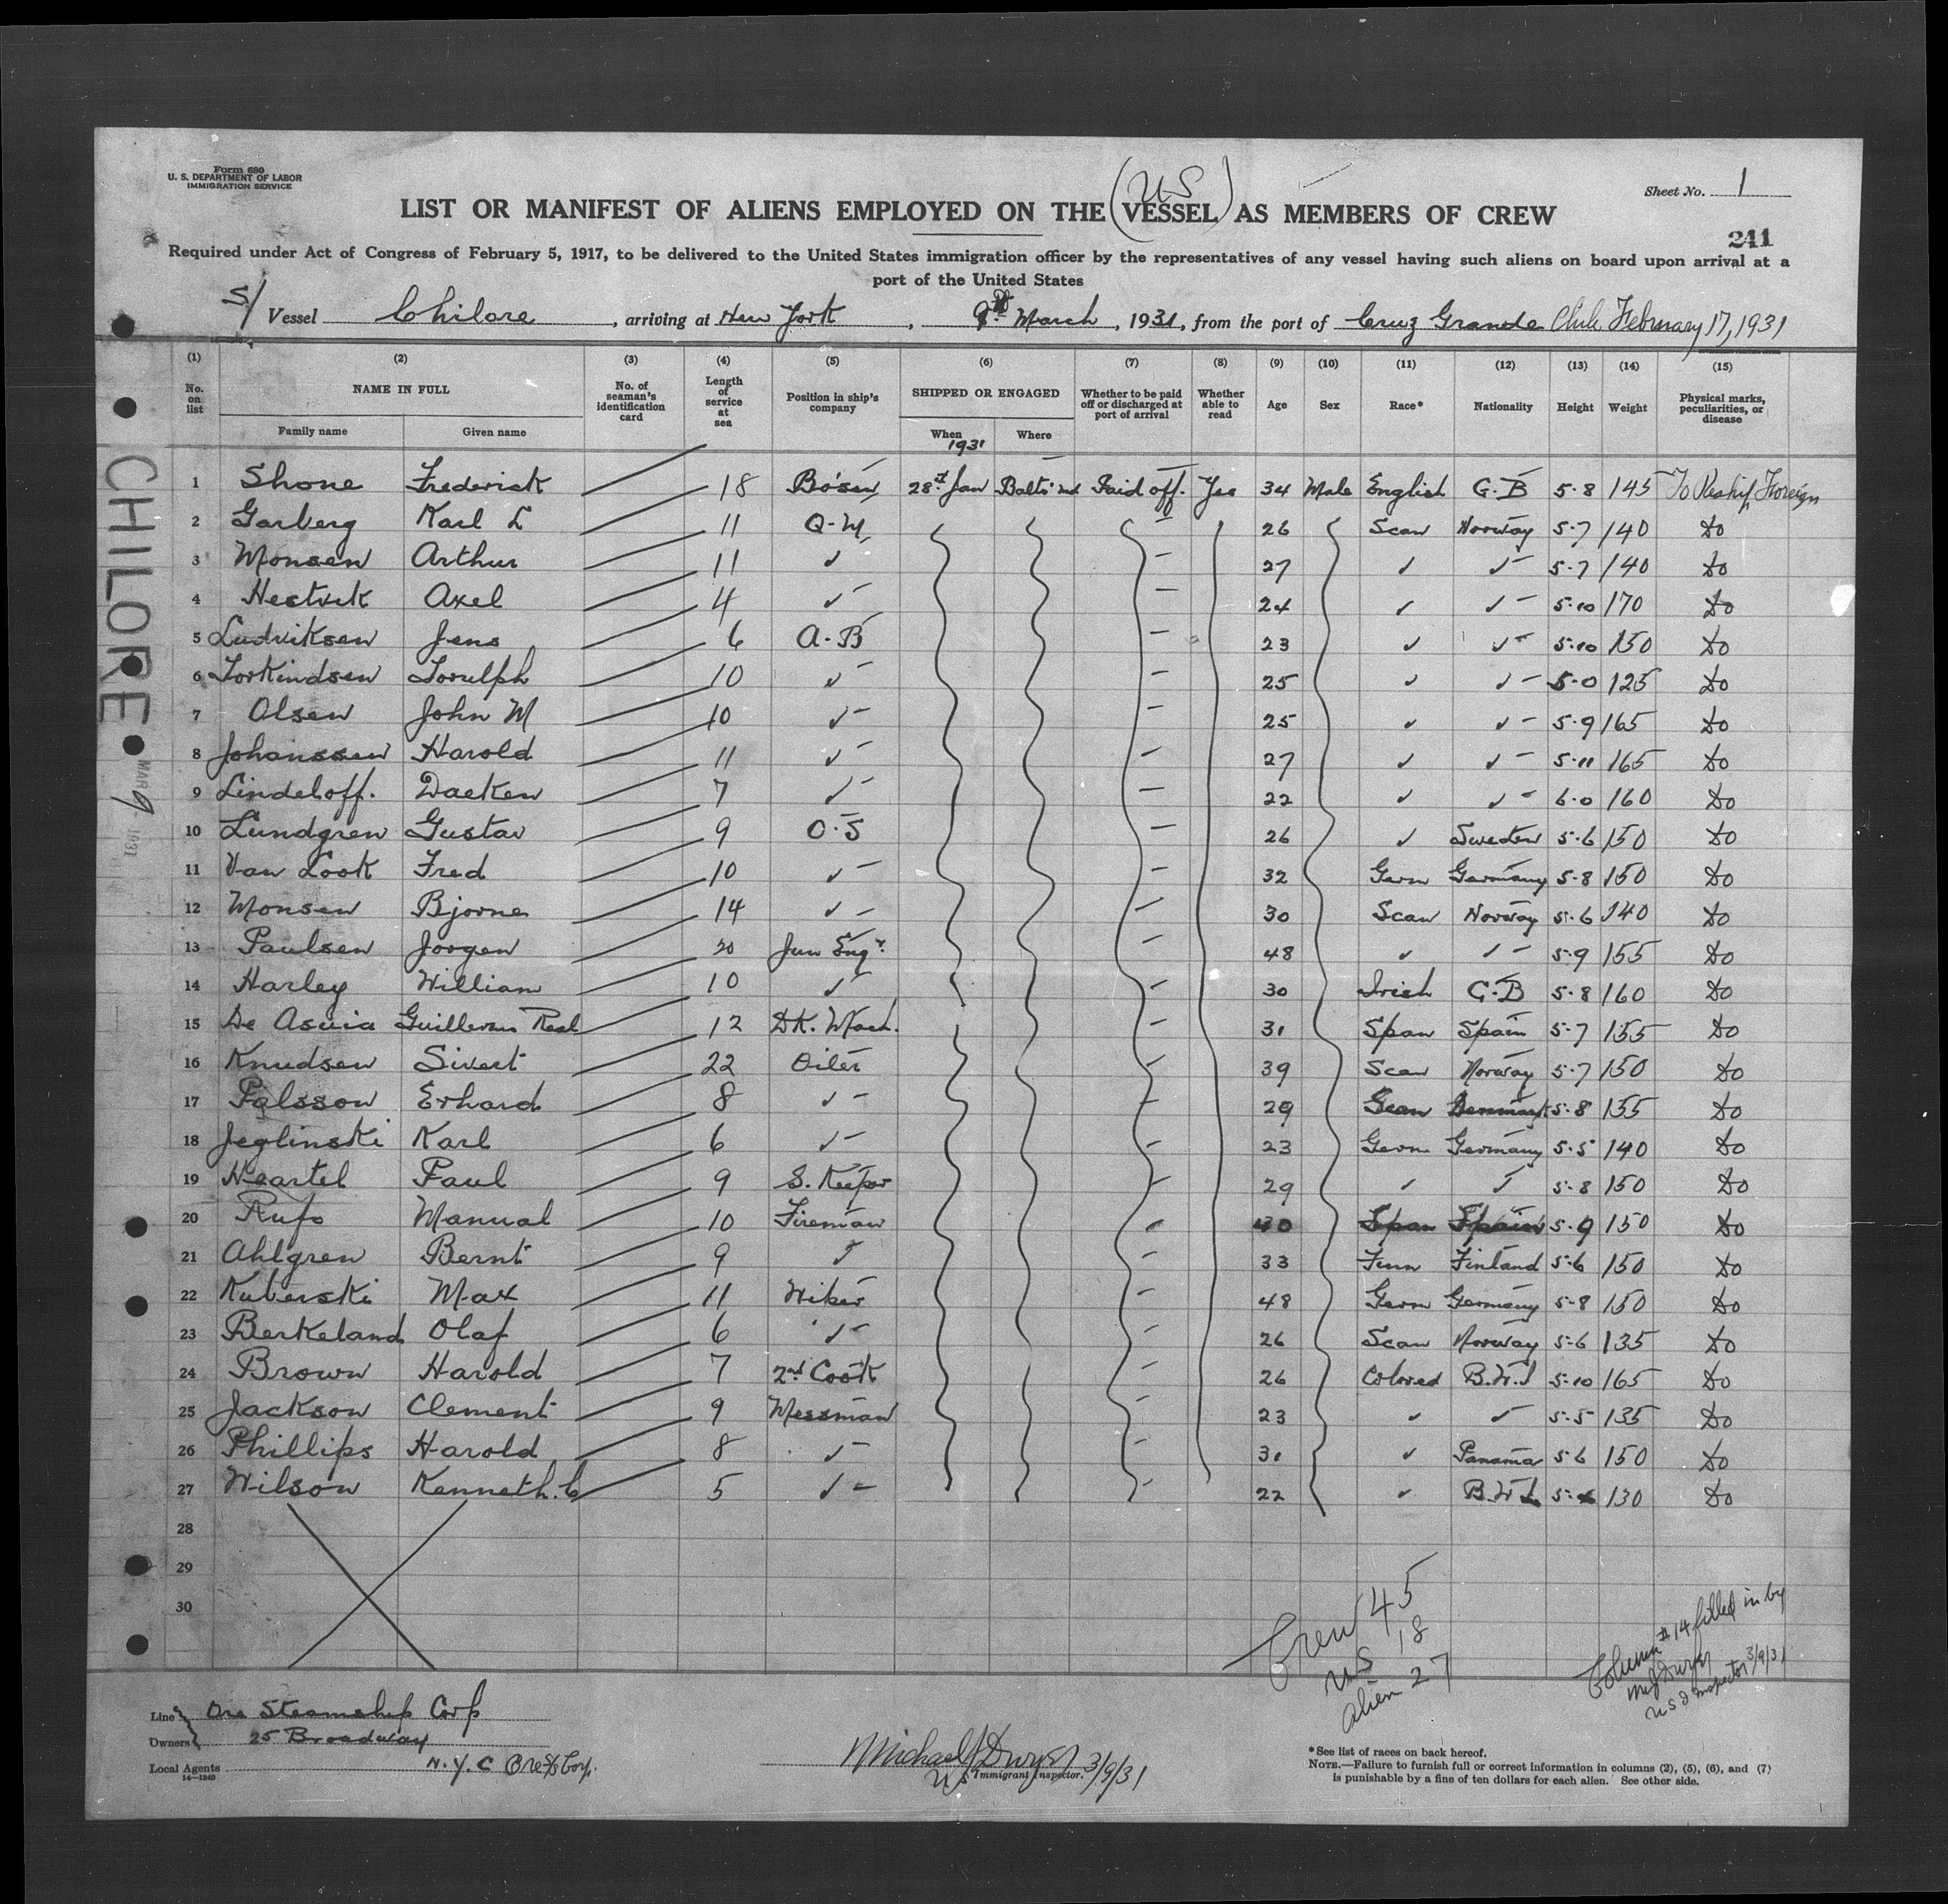 Form 680
U. S. DEPARTMENT OF LABOR
IMMIGRATION SERVICE
Sheet No. 1
(US)
LIST OR MANIFEST OF ALIENS EMPLOYED ON THE VESSEL AS MEMBERS OF CREW
241
Required under Act of Congress of February 5, 1917, to be delivered to the United States immigration officer by the representatives of any vessel having such aliens on board upon arrival at a
port of the United States
S/ Vessel Chilore, arriving at New York, 9th March, 1931, from the port of Cruz Grande Chile February 17, 1931
(1) (2) (3) (4) (5) (6) (7) (8) (9) (10) (11) (12) (13) (14) (15)
No. on list NAME IN FULL No. of seaman's identification card Length of service at sea Position in ship's company SHIPPED OR ENGAGED Whether to be paid off or discharged at port of arrival Whether able to read Age Sex Race* Nationality Height Weight Physical marks, peculiarities, or disease
Family name Given name When Where
1931
1 Shone Frederick 18 Bosun 28th Jan Balto Md Paid off. Yes 34 Male English G.B 5-8 145 To Reship Foreign
2 Garberg Karl L 11 Q-M 26 Scan Norway 5-7 140 Do
3 Monsen Arthur 11 ✓ 27 ✓ ✓ 5-7 140 Do
4 Hestvik Axel 4 ✓ 24 ✓ ✓ 5-10 170 Do
5 Ludviksen Jens 6 A-B 23 ✓ ✓ 5-10 150 Do
6 Torkindsen Torulph 10 ✓ 25 ✓ ✓ 5-0 125 Do
7 Olsen John M 10 ✓ 25 ✓ ✓ 5-9 165 Do
8 Johanssen Harold 11 ✓ 27 ✓ ✓ 5-11 165 Do
9 Lindeloff. Daeken 7 ✓ 22 ✓ ✓ 6-0 160 Do
10 Lundgren Gustav 9 O-S 26 ✓ Sweden 5-6 150 Do
11 Van Look Fred 10 ✓ 32 Germ Germany 5-8 150 Do
12 Monsen Bjorne 14 ✓ 30 Scan Norway 5-6 140 Do
13 Paulsen Jorgen 20 Jun Engr. 48 ✓ ✓ 5-9 155 Do
14 Harley William 10 ✓ 30 Irish G.B 5-8 160 Do
15 De Asuia Guillermo Real 12 DK. Mach. 31 Span Spain 5-7 155 Do
16 Knudsen Sivert 22 Oiler 39 Scan Norway 5-7 150 Do
17 Palsson Erhard 8 ✓ 29 Scan Denmark 5-8 155 Do
18 Jeglinski Karl 6 ✓ 23 Germ Germany 5-5 140 Do
19 Heartel Paul 9 S. Keeper 29 ✓ ✓ 5-8 150 Do
20 Rufo Manual 10 Fireman 40 Span Spain 5-9 150 Do
21 Ahlgren Bernt 9 ✓ 33 Finn Finland 5-6 150 Do
22 Kuberski Max 11 Wiper 48 Germ Germany 5-8 150 Do
23 Berkeland Olaf 6 ✓ 26 Scan Norway 5-6 135 Do
24 Brown Harold 7 2nd Cook 26 Colored B.W.I 5-10 165 Do
25 Jackson Clement 9 Messman 23 ✓ ✓ 5-5 135 Do
26 Phillips Harold 8 ✓ 31 ✓ Panama 5-6 150 Do
27 Wilson Kenneth. C 5 ✓ 22 ✓ B.W.I. 130 Do
28
29
30
CHILORE
MAR 9 1931
Crew 45
US 18
Alien 27
Column #14 filled in by
MJ Dwyer
US I Inspector 3/9/31
Line Ore Steamship Corp
Owners 25 Broadway
Local Agents N.Y.C Ore S/s Corp.
14-1240
Michael J Dwyer
US Immigrant Inspector. 3/9/31
*See list of races on back hereof.
NOTE.—Failure to furnish full or correct information in columns (2), (5), (6), and (7)
is punishable by a fine of ten dollars for each alien. See other side.